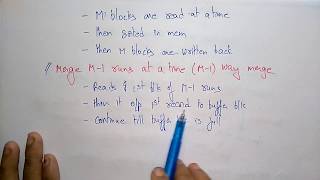 - M blocks are read at a time
- Then sorted in mem
- Then M blocks are written back
Merge M-1 runs at a time (M-1) way merge
- Reads 1st blk of M-1 runs
- then it o/p 1st record to buffer blk
- Continue till buffer is full